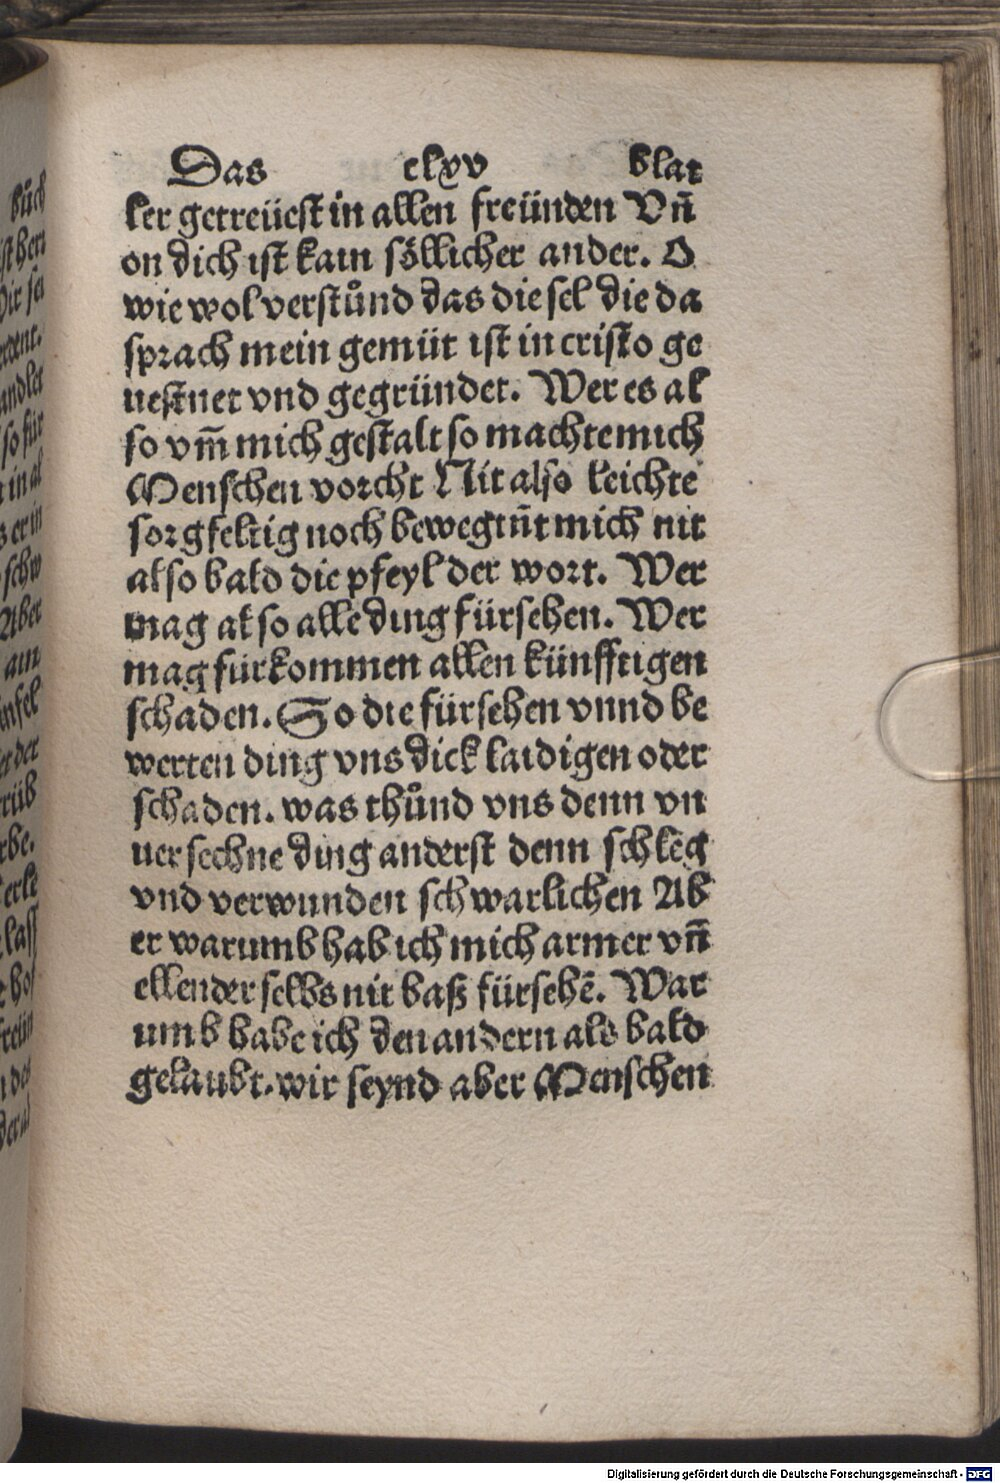 Das clxv blat
ler getreüest in allen freünden Vn̄
on dich ist kain söllicher ander. O
wie wol verstůnd das die sel die da
sprach mein gemüt ist in cristo ge
uestnet vnd gegründet. Wer es al
so vm̄ mich gestalt so machte mich
Menschen vorcht Nit also leichte
sorgfeltig noch bewegtn̄t mich nit
also bald die pfeyl der wort. Wer
mag also alle ding fürsehen. Wer
mag fürkommen allen künfftigen
schaden. So die fürsehen vnnd be
werten ding vns dick laidigen oder
schaden. was thůnd vns denn vn
uersechne ding anderst denn schleg
vnd verwunden schwarlichen Ab
er warumb hab ich mich armer vn̄
ellender selbs nit baß fürsehē. War
umb habe ich den andern als bald
gelaubt. wir seynd aber Menschen
Digitalisierung gefördert durch die Deutsche Forschungsgemeinschaft - DFG